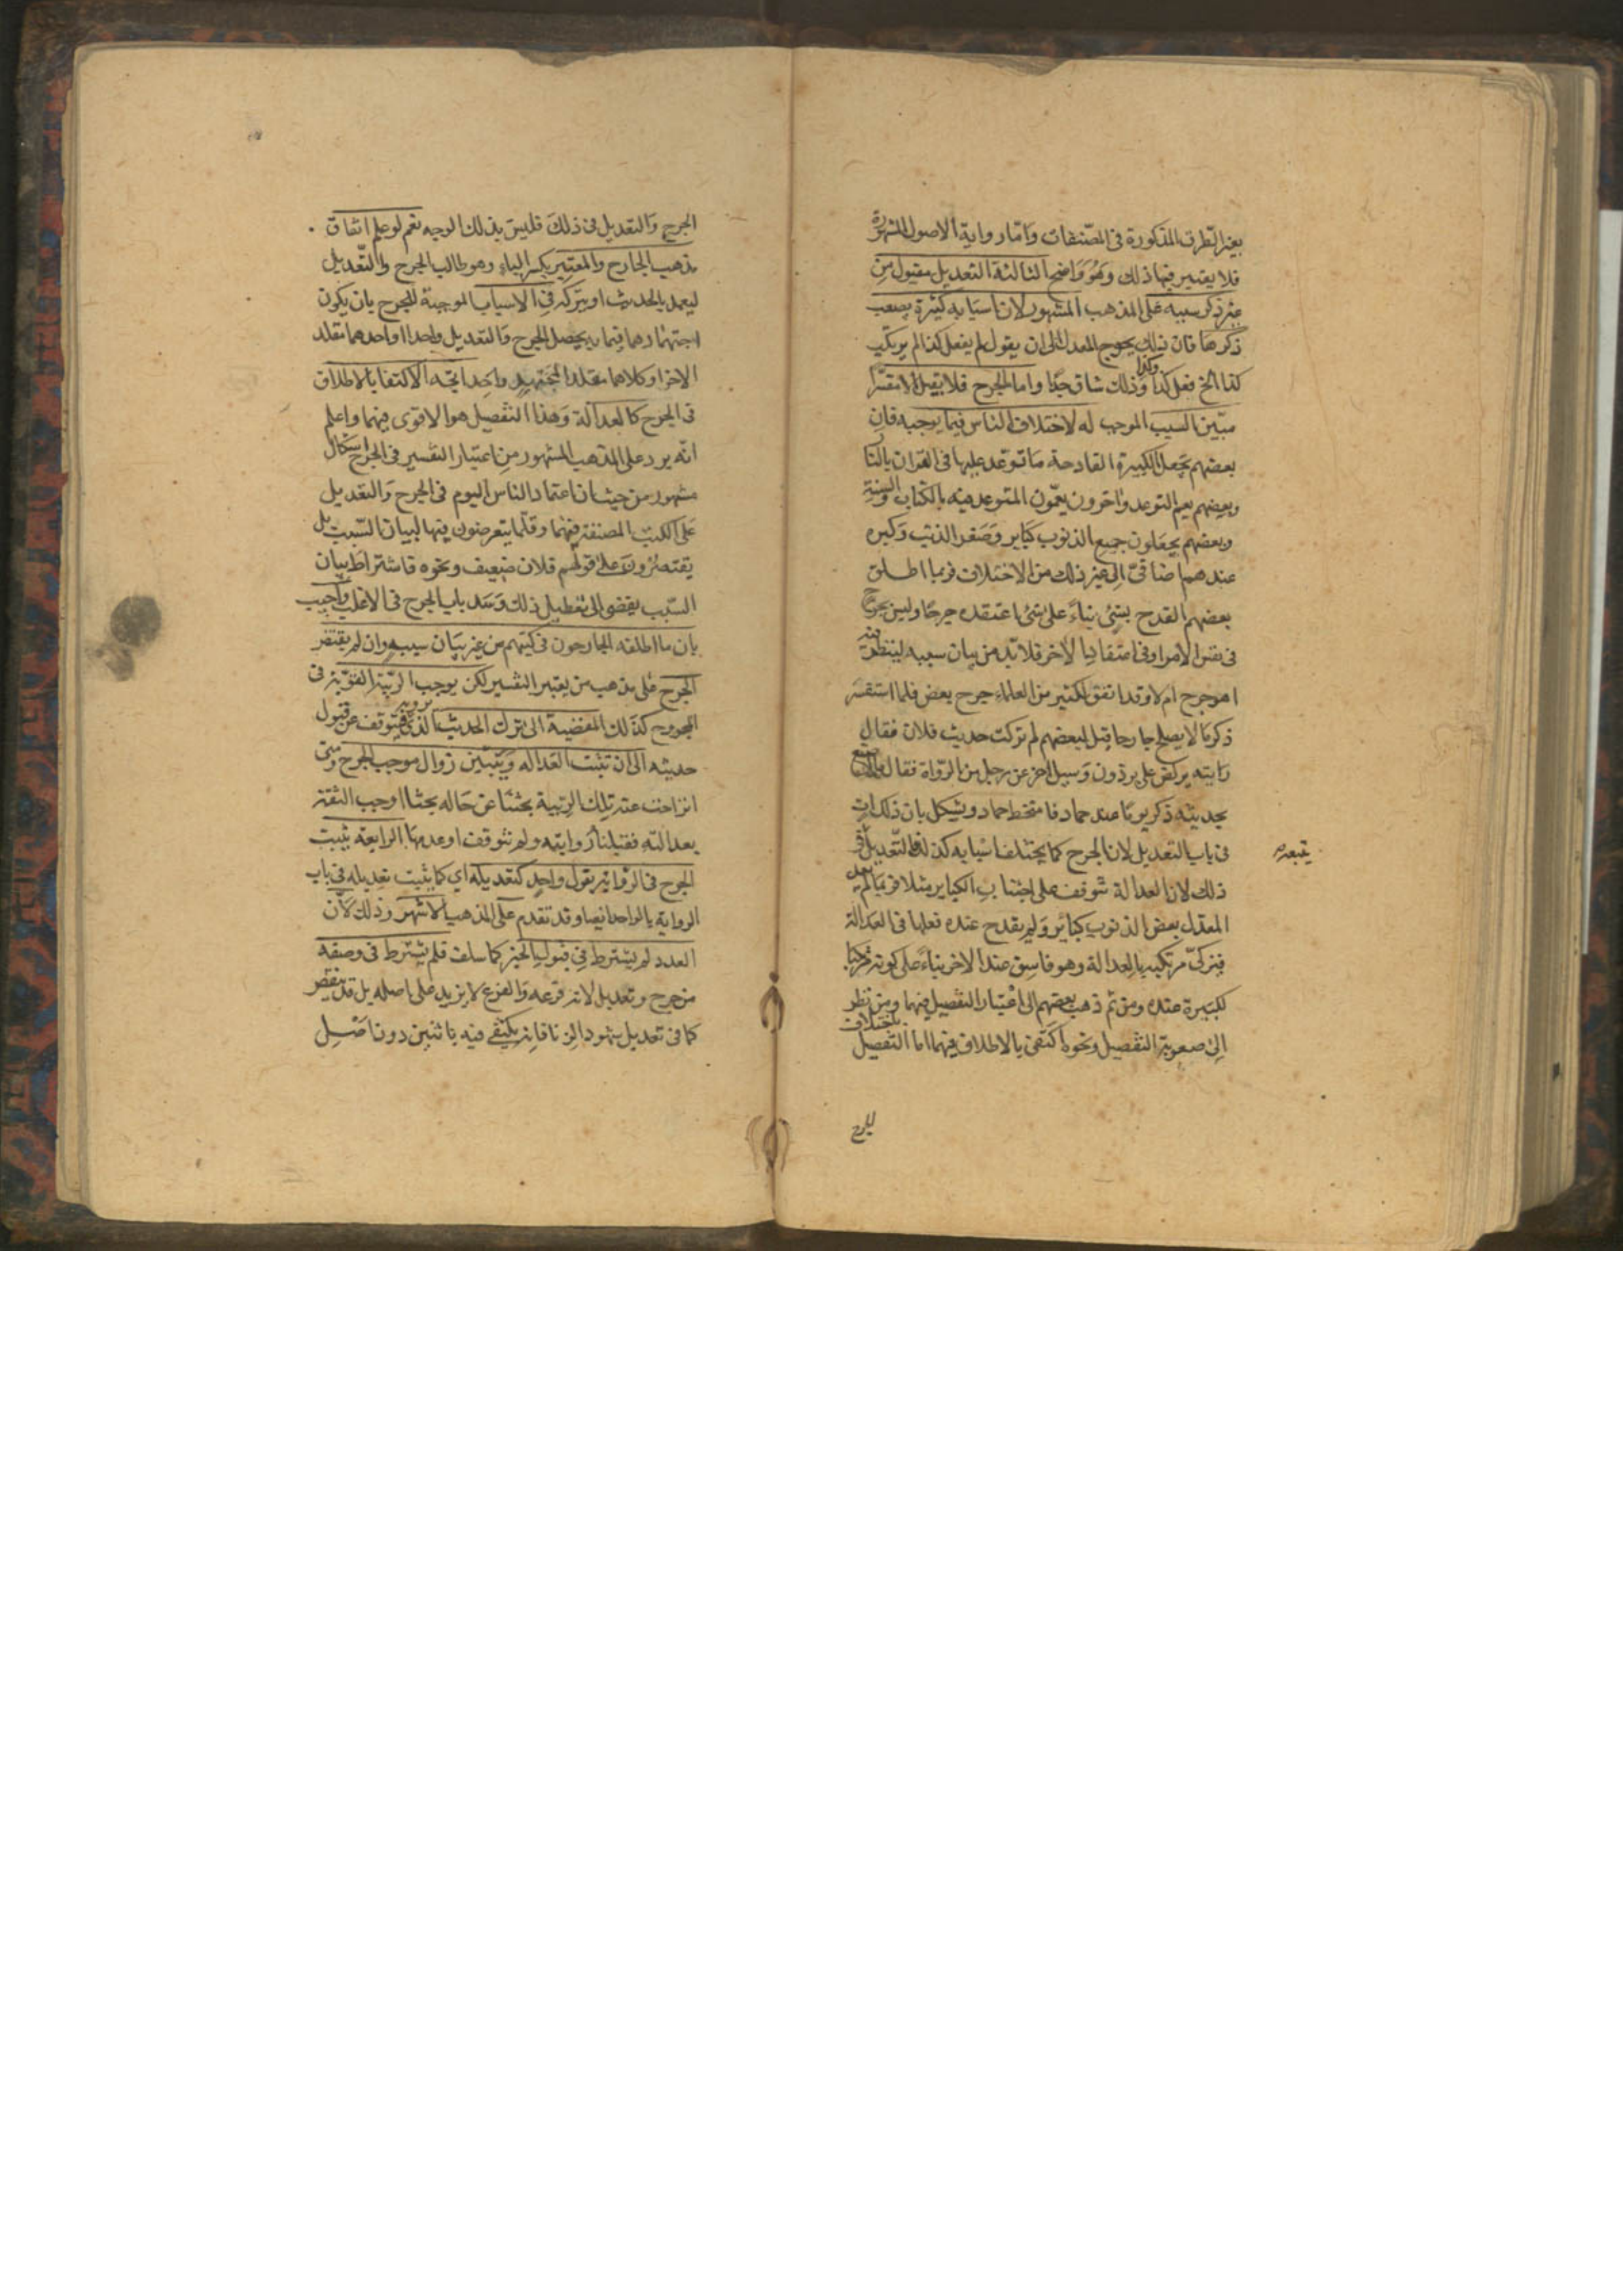 بغير الطرق المذكورة فى المصنفات وَامّا رواية الاصول المشهورة
فلا يعتبر فيها ذلك وَهُوَ وَاضح الثالثة التعديل مقبول مِن
غير ذكر سببه على المذهب المشهور لان اسبَابه كثيرة يصعب
ذكرهَا فان ذلك يحوج المعدل الى ان يقول لم يفعل كذا لم يرتكب
كذا الخ فعل كذا وكذا وَذلك شاق جدّا واما الجرح فلا يقبل الا مفسّرا
مبّين السبب الموجب له لاختلاف الناس فيما يوجبه فان
بعضهم يجعل الكبيرة القادحة مَا توّعد عليها فى القران بالنار
وبعضهم يعم التوعد وَاخرون يعمّون المتوعد فيه بالكتاب والسنة
وبعضهم يجعَلون جميع الذنوب كبَاير وَصَغر الذنب وَكبره
عندهم اضافىّ الى غير ذلك من الاختلاف فربما اطلق
بعضهم القدح بشئ بناءً على شئ اعتقده جرحًا وليس بجرح
فى نفس الامر او فى اعتقاد الاخر فلا بّد من بيان سببه لينظر فيه
اهو جرح ام لا وقد اتفق لكثير من العلماءِ جرح بعض فلما استفسر
ذكر مَا لا يصلح جارحا قيل لبعضهم لم تركت حديث فلان فقال
رَايته يركض على برذون وَسيل اخر عن رجل من الرّواة فقال ما اصنع
بحديثه ذكر يومًا عند حماد فامتخط حماد ويشكل بان ذلك ات
فى باب التعديل لان الجرح كما يختلف اسبابه كذلك التّعديل
ذلك لان العدالة تتوقف على اجتناب الكبَاير مثلا فربمَا لم يعد
المعدل بعض الذنوب كبَائر وَلم يقدح عنده فعلها فى العدالة
فيزكىّ مرتكبه بالعدالة وهو فاسق عند الاخر بناءً على كونه مرتكبا
لكبيرة عنده ومن ثم ذهب بعضهم الى اعتبار التفصيل فيهما ومن نظر
الى صعوبة التفصيل ونحوه اكتَفى بالاطلاق فيهما اما التفصيل باختلاف
الجرح وَالتعديل فى ذلكَ فليسَ بذلك الوجه نعم لو علم اتفاق
مذهب الجارح والمعتبِر بكسر الباءِ وهو طالب الجرح والتّعديل
ليعمل بالحديث او يتركه فِى الاسباب الموجبة للجرح بان يكون
اجتهادهما فيما به يحصل الجرح وَالتعديل واحدا او احدهما مقلد
الاخر او كلاهما مقلد المجتهدٍ واحِد اتجه الاكتفا بالاطلاق
فى الجرح كالعدالة وَهذا التفصيل هو الاقوى فيهما واعلم
انّه يرد على المذهب المشهور مِن اعتبار التفسير فى الجرح اشكال
مشهور من حيث ان اعتماد الناس اليوم فى الجرح وَالتعديل
عَلى الكتب المصنفة فيهما وقلّما يتعرضون فيها لبيان السّبب بل
يقتصرُونَ على قولهم فلان ضعيف ونحوه فاشتراط بيان
السّبب يفضى الى تعطيل ذلك وَسَد باب الجرح فى الاغلب وَاجيب
بان ما اطلقه الجارحون فى كتبهم من غير بَيان سببه وان لم يقتض
الجرح على مذهب من يعتبر التفسير لكن يوجب الريبة القوّية فى
المجروح كذلك المفضية الى ترك الحديث الذى يرويه فيتوقف عن قبول
حديثه الى ان تثبت العَداله وَيتبّين زوال موجب الجرح ومن
انزاحت عنه تلك الريبة بحثنَا عَن حَاله بحثا اوجب الثقة
بعدالتّهِ فقبلنا رِوايته ولم نتوقف او عدمهَا الرابعة يثبت
الجرح فى الرّواة بقول واحِدٍ كتعديله اي كما يثبت تعديله فى باب
الرواية بالواحد ايضا وقد تقدم عَلى المذهب الاشهر وَذلك لاّن
العدد لم يشترط فِى قبول الخبر كما سلف فلم يشترط فى وصفه
من جرح وتعديل لانه فرعه وَالفرع لا يزيد على اصله بل قد ينقص
كما فى تعديل شهود الزنا فانه يكتفى فيه باثنين دون اصْلِ